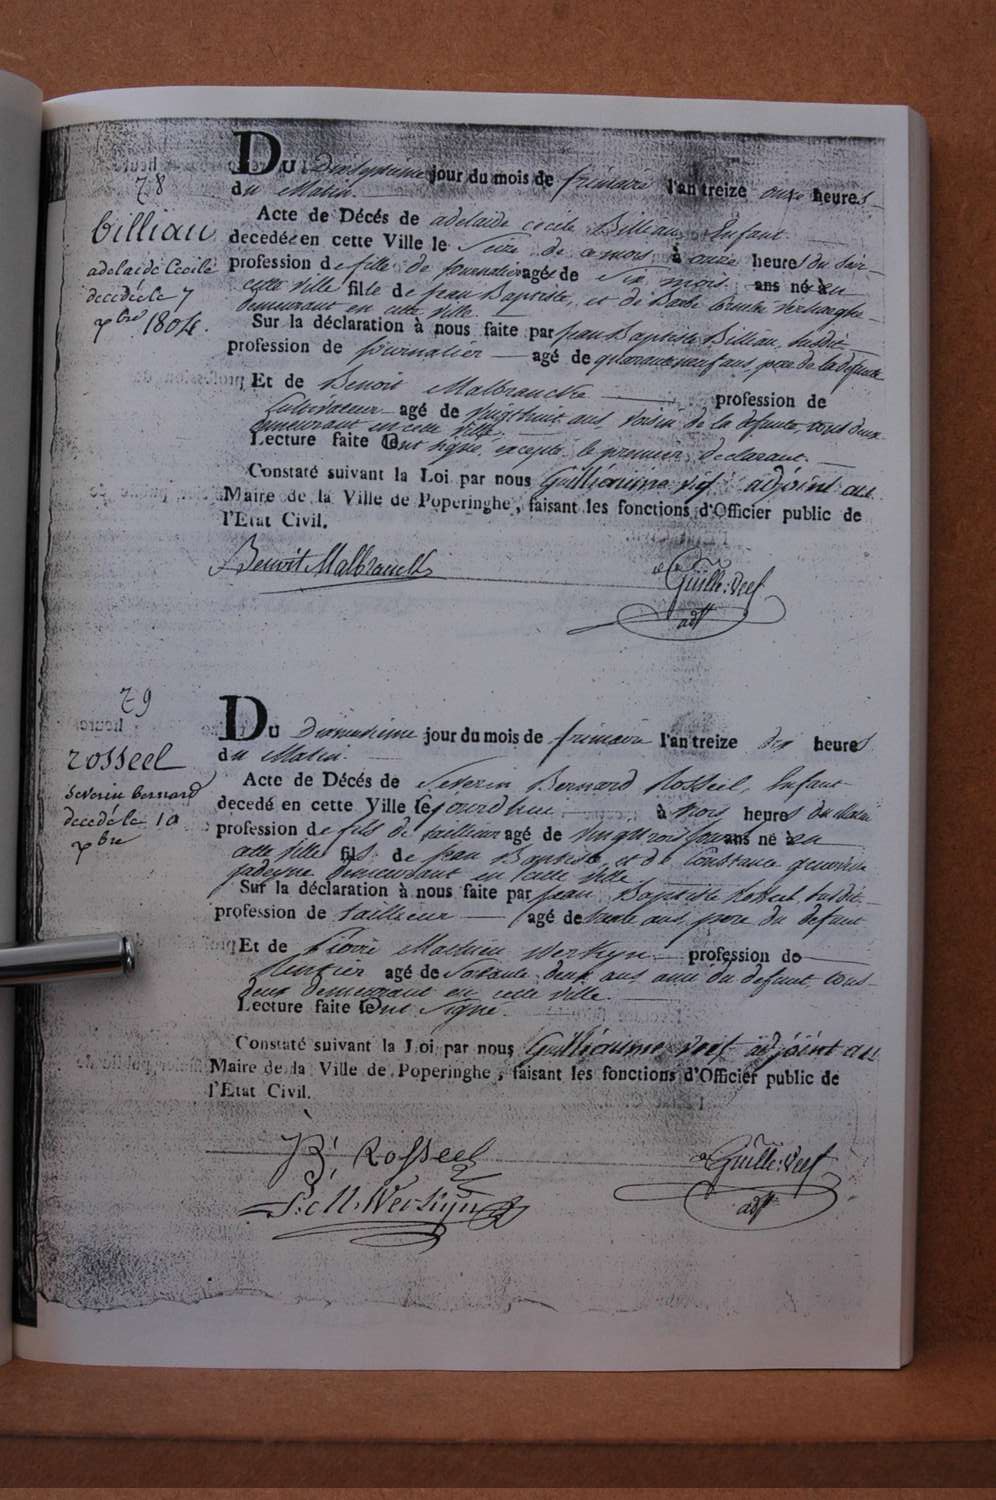 78
billiau
adelaide Cecile
decedée le 7
xbre 1804.
Du Dixseptieme jour du mois de frimaire l'an treize onze heures
du Matin.
Acte de Décés de adelaide cecile Billiau, Enfant
decedée en cette Ville le Seize de ce mois à onze heures du soir
profession de fille de journalier agée de Six mois ans née en
cette ville fille de jean Baptiste, et de Barbe
demeurant en cette ville.
Sur la déclaration à nous faite par jean Baptiste Billiau, susdit
profession de journalier agé de quarante neuf ans, pere de la defunte
Et de Benoit Malbrancke profession de
Cultivateur agé de vingt huit ans, voisin de la defunte, tous deux
demeurant en cette ville
Lecture faite ont signé, excepté le premier declarant.
Constaté suivant la Loi par nous Guilliaume Deef adjoint au
Maire de la Ville de Poperinghe, faisant les fonctions d'Officier public de
l'Etat Civil.
Benoit Malbranck
Guille: Deef
adjt
79
rosseel
Severin bernard
decedé le 10
xbre
Du Dixneuvieme jour du mois de frimaire l'an treize dix heures
du Matin.
Acte de Décés de Severin Bernard Rosseel, Enfant
decedé en cette Ville le jourd'hui à trois heures du Matin
profession de fils de tailleur agé de vingt trois jours ans né en
cette ville fils de jean Baptiste, et de Constance genoveve
demeurant en cette ville
Sur la déclaration à nous faite par jean Baptiste Rosseel susdit
profession de tailleur agé de trente ans, pere du defunt
Et de Pierre Mathieu Werkyn profession de
Rentier agé de Soixante deux ans ami du defunt, tous
deux demeurant en cette ville.
Lecture faite ont signé.
Constaté suivant la Loi par nous Guilliaume Deef adjoint au
Maire de la Ville de Poperinghe, faisant les fonctions d'Officier public de
l'Etat Civil.
B, Rosseel
P: M. Werkyn
Guille: Deef
adjt